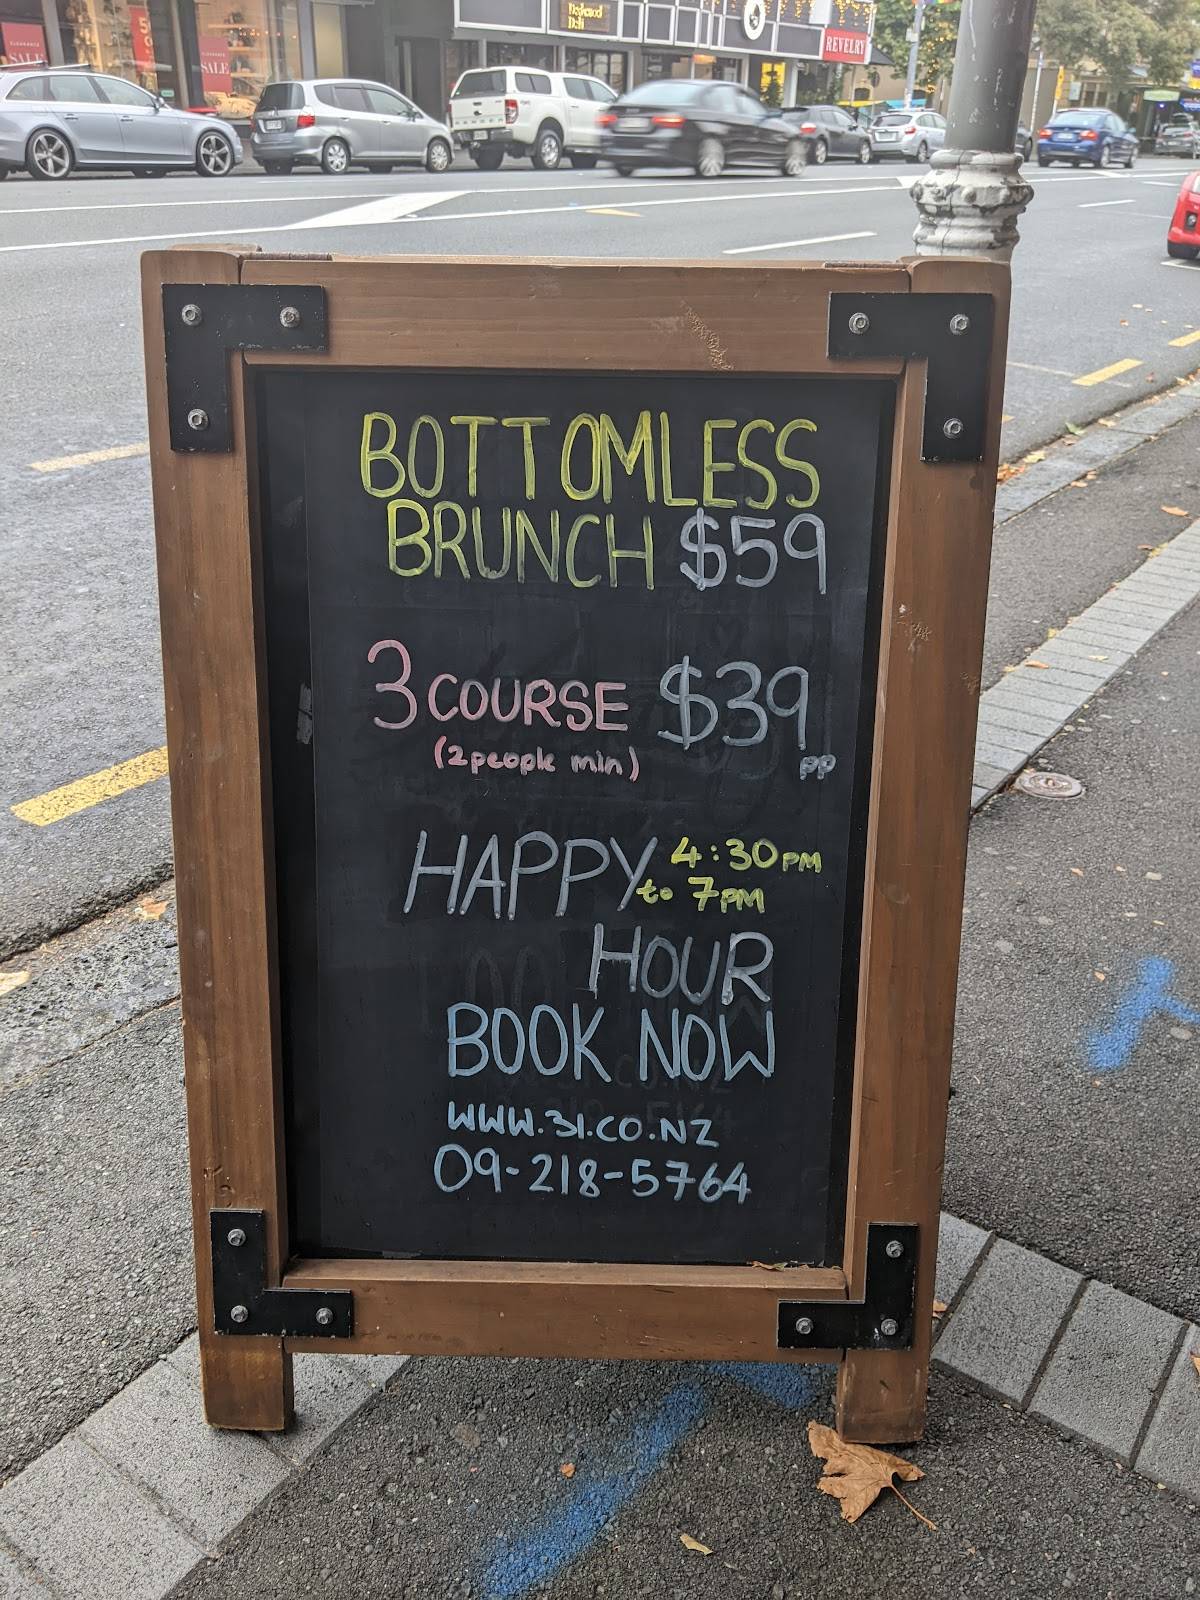 CLEARANCE
SALE
SALE
Redwood
Deli
REVELRY
BOTTOMLESS
BRUNCH $59
3 COURSE $39
(2 people min) pp
HAPPY 4:30PM
to 7PM
HOUR
BOOK NOW
WWW.31.CO.NZ
09-218-5764